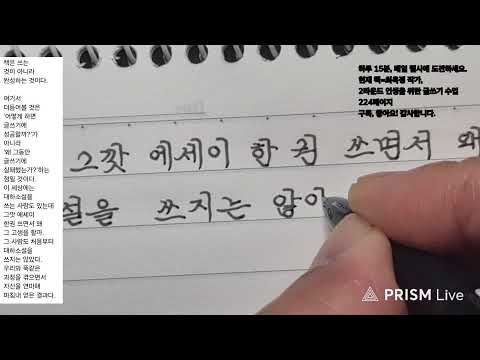 책은 쓰는
것이 아니라
완성하는 것이다.
여기서
더듬어볼 것은
'어떻게 하면
글쓰기에
성공할까?'가
아니라
'왜 그동안
글쓰기에
실패했는가?'하는
점일 것이다.
이 세상에는
대하소설을
쓰는 사람도 있는데
그깟 에세이
한권 쓰면서 왜
그 고생을 할까.
그 사람도 처음부터
대하소설을
쓰지는 않았다.
우리와 똑같은
과정을 겪으면서
자신을 연마해
마침내 얻은 결과다.
하루 15분, 매일 필사에 도전하세요.
현재 책=최옥정 작가,
2라운드 인생을 위한 글쓰기 수업
224페이지
구독, 좋아요! 감사합니다.
그깟 에세이 한 권 쓰면서 왜
설을 쓰지는 않아
PRISM Live